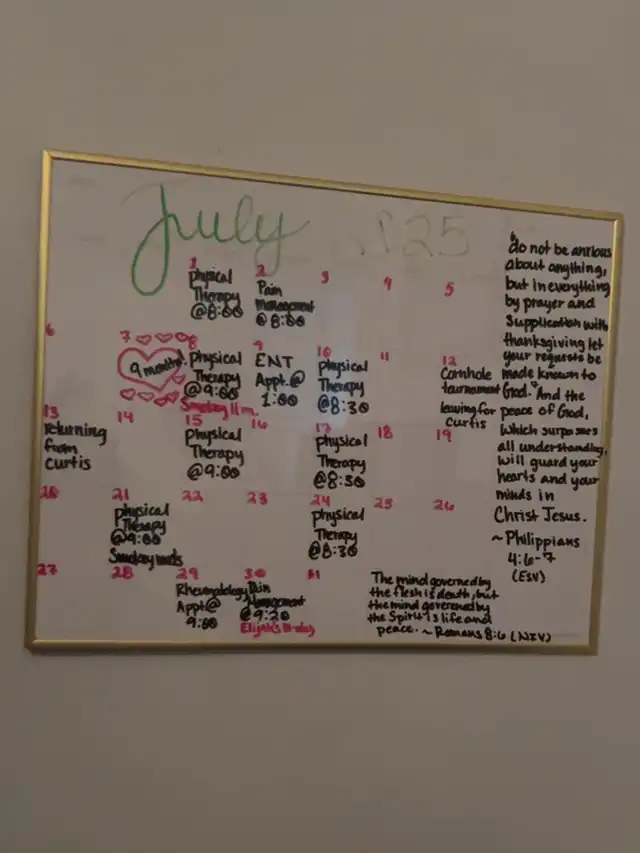 July 2025
1 2 3 4 5
Physical
Therapy
@8:00
Pain
Management
@ 8:00
6 7 8 9 10 11 12
9 months!
Physical
Therapy
@9:00
ENT
Appt.@
1:00
Physical
Therapy
@8:30
Cornhole
tournament
leaving for
Curtis
13 14 15 16 17 18 19
returning
from
Curtis
Physical
Therapy
@9:00
Physical
Therapy
@8:30
20 21 22 23 24 25 26
Physical
Therapy
@9:00
Physical
Therapy
@8:30
27 28 29 30 31
Rheumatology
Appt.@
9:00
Pain
Management
@9:20
Elijah's B-day
do not be anxious
about anything,
but in everything
by prayer and
supplication with
thanksgiving let
your requests be
made known to
God. And the
peace of God,
which surpasses
all understanding,
will guard your
hearts and your
minds in
Christ Jesus.
~Philippians
4:6-7
(ESV)
The mind governed by
the flesh is death, but
the mind governed by
the Spirit is life and
peace. ~Romans 8:6 (NIV)